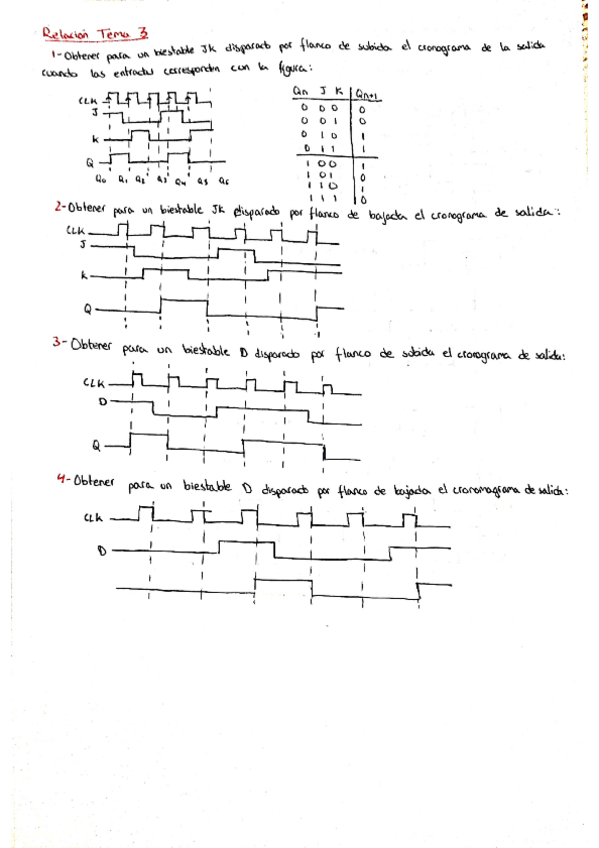 Relación Tema 3
1-Obtener para un biestable JK disparado por flanco de subida el cronograma de la salida
cuando las entradas corresponden con la figura:
CLK
J
K
Q
Q0 Q1 Q2 Q3 Q4 Q5 Q6
Qn J K Qn+1
0 0 0 0
0 0 1 0
0 1 0 1
0 1 1 1
1 0 0 1
1 0 1 0
1 1 0 1
1 1 1 0
2-Obtener para un biestable JK disparado por flanco de bajada el cronograma de salida:
CLK
J
K
Q
3-Obtener para un biestable D disparado por flanco de subida el cronograma de salida:
CLK
D
Q
4-Obtener para un biestable D disparado por flanco de bajada el cronomagrama de salida:
CLK
D